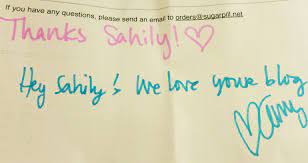 If you have any questions, please send an email to orders@sugarpill.net
Thanks Sahily!
Hey Sahily! We love your blog
Amy